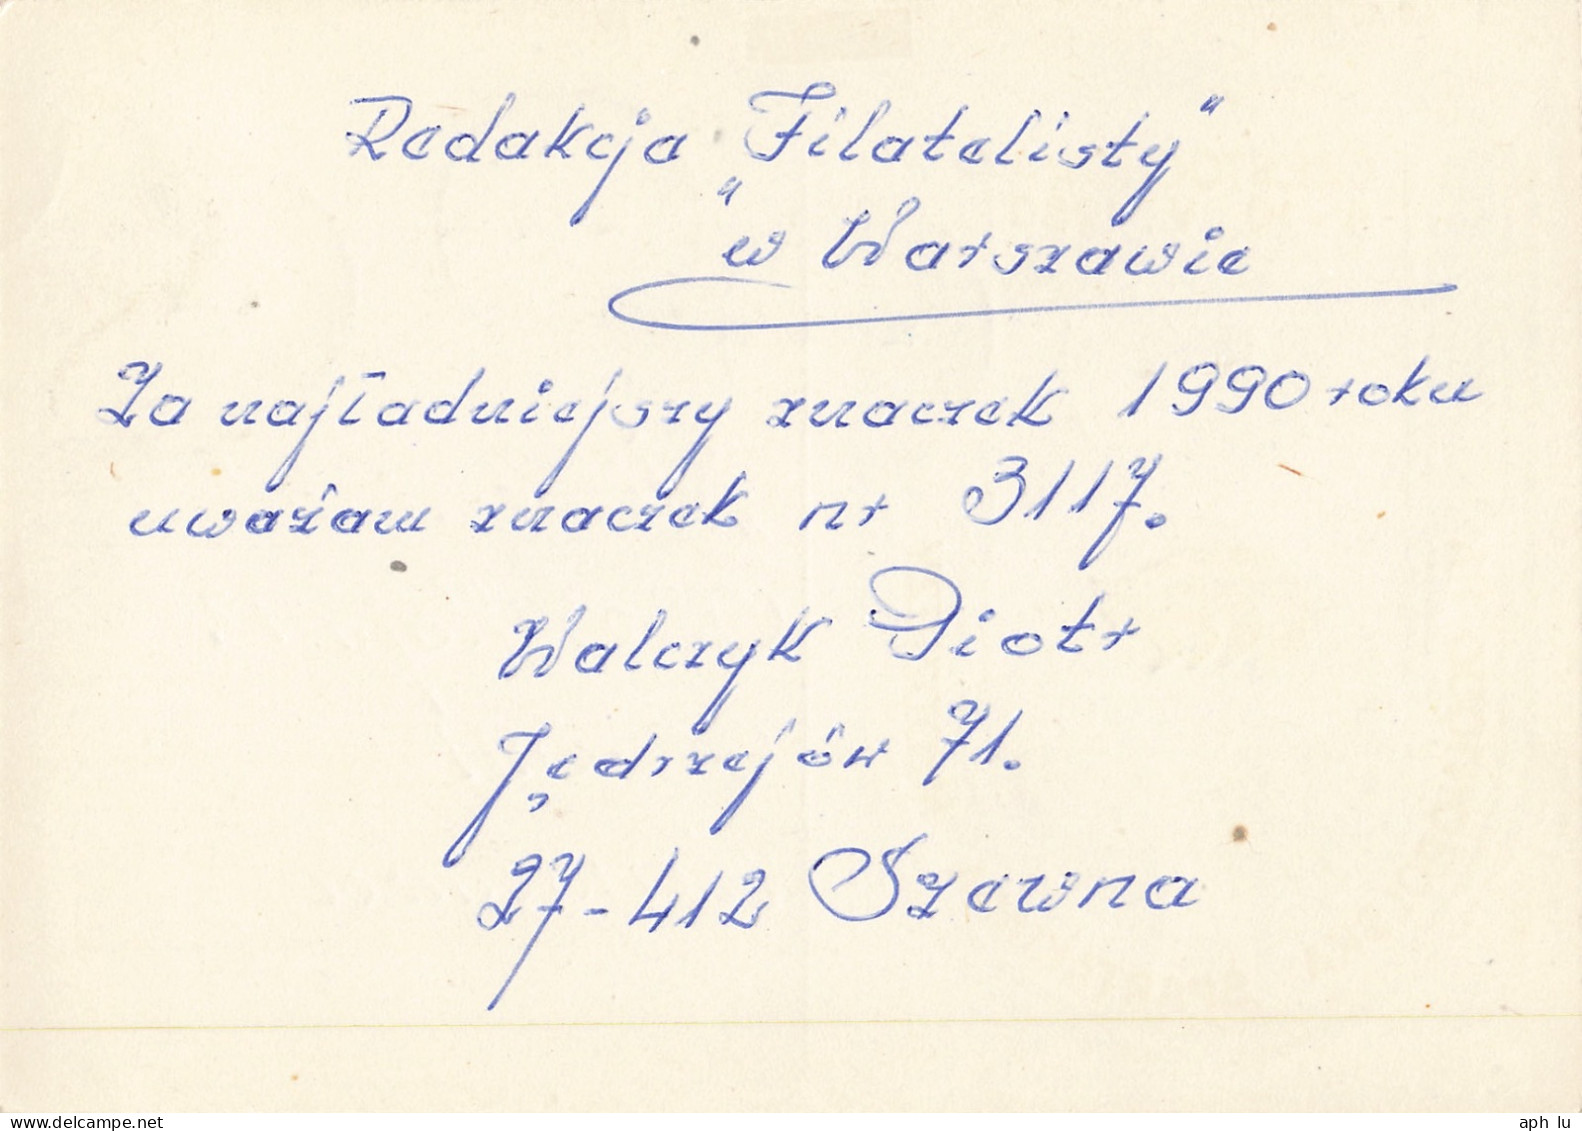 Redakcja „Filatelisty"
w Warszawie
Za najładniejszy znaczek 1990 roku
uważam znaczek nr 3117.
Walczyk Piotr
Jędrzejów 71.
27-412 Szewna
www.delcampe.net
aph lu